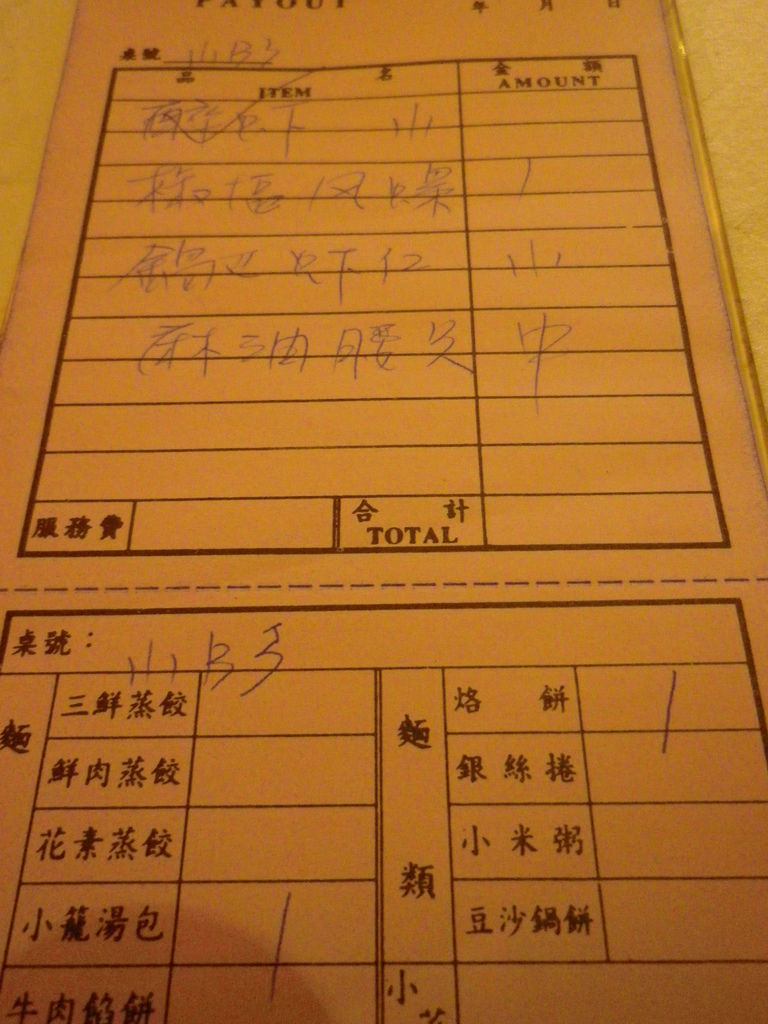 PAYOUT 年 月 日
桌號 小B3
品 名 ITEM 金 額 AMOUNT
醉蝦 小
椒塩风螺 1
鍋巴虾仁 小
麻油腰只 中
服務費 合 計 TOTAL
桌號： 小B3
麵 三鮮蒸餃 麵類 烙 餅 1
鮮肉蒸餃 銀絲捲
花素蒸餃 小米粥
小籠湯包 1 豆沙鍋餅
牛肉餡餅 小